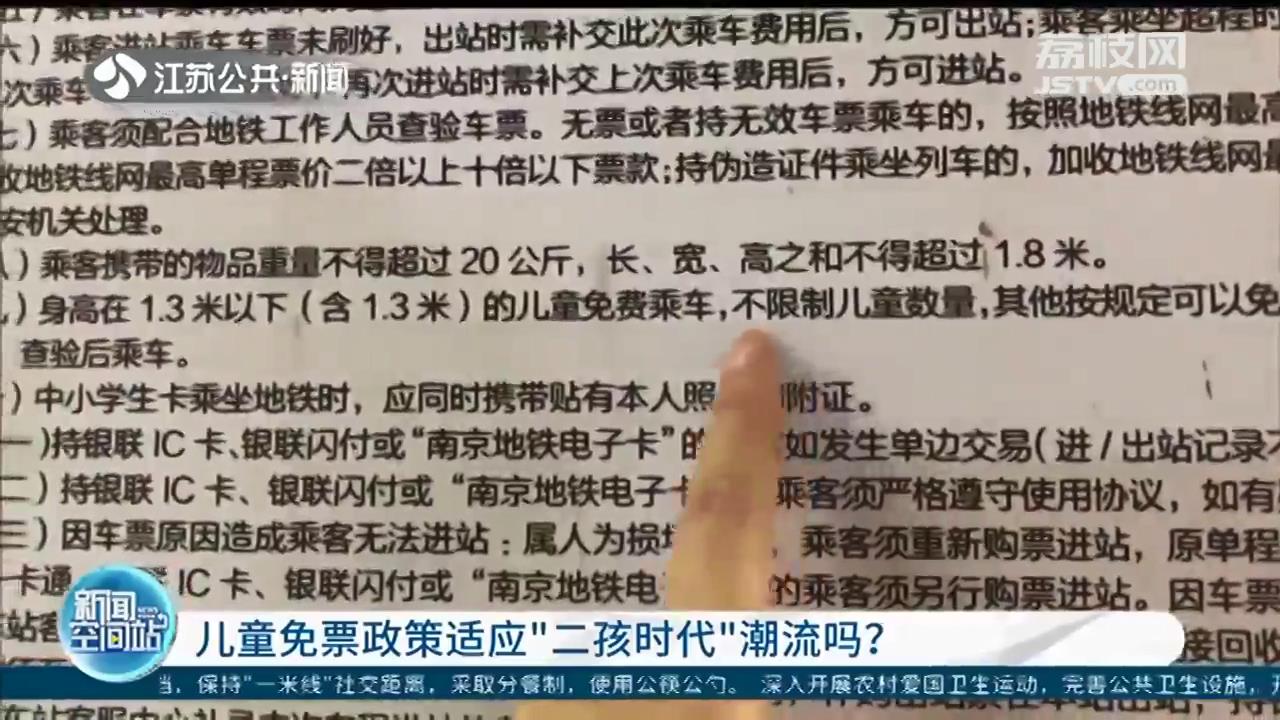 五）乘客在乘车
六）乘客进站乘车车票未刷好，出站时需补交此次乘车费用后，方可出站；乘客乘坐超程时
次乘车 再次进站时需补交上次乘车费用后，方可进站。
江苏公共·新闻
荔枝网
JSTV.com
七）乘客须配合地铁工作人员查验车票。无票或者持无效车票乘车的，按照地铁线网最高
收地铁线网最高单程票价二倍以上十倍以下票款；持伪造证件乘坐列车的，加收地铁线网最
安机关处理。
）乘客携带的物品重量不得超过 20 公斤，长、宽、高之和不得超过 1.8 米。
）身高在 1.3 米以下（含 1.3 米）的儿童免费乘车，不限制儿童数量，其他按规定可以免
查验后乘车。
）中小学生卡乘坐地铁时，应同时携带贴有本人照 附证。
一）持银联 IC 卡、银联闪付或“南京地铁电子卡”的 如发生单边交易（进 / 出站记录不
二）持银联 IC 卡、银联闪付或“南京地铁电子卡 乘客须严格遵守使用协议，如有
三）因车票原因造成乘客无法进站：属人为损坏 ，乘客须重新购票进站，原单程
卡通 IC 卡、银联闪付或“南京地铁电子 的乘客须另行购票进站。因车票
站客 接回收
新闻
空间站
NEWS
儿童免票政策适应"二孩时代"潮流吗？
当，保持"一米线"社交距离，采取分餐制，使用公筷公勺。 深入开展农村爱国卫生运动，完善公共卫生设施，开